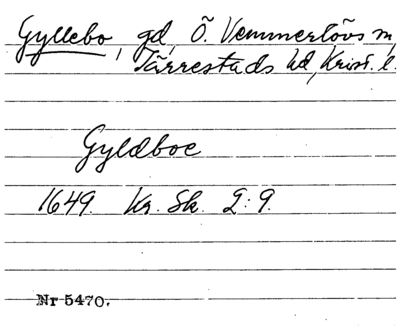 Gyllebo, gd, Ö. Vemmerlövs sn,
Järrestads hd, Krist. l.
Gyldboe
1649. Kr. Sk. 2:9.
Nr 5470.